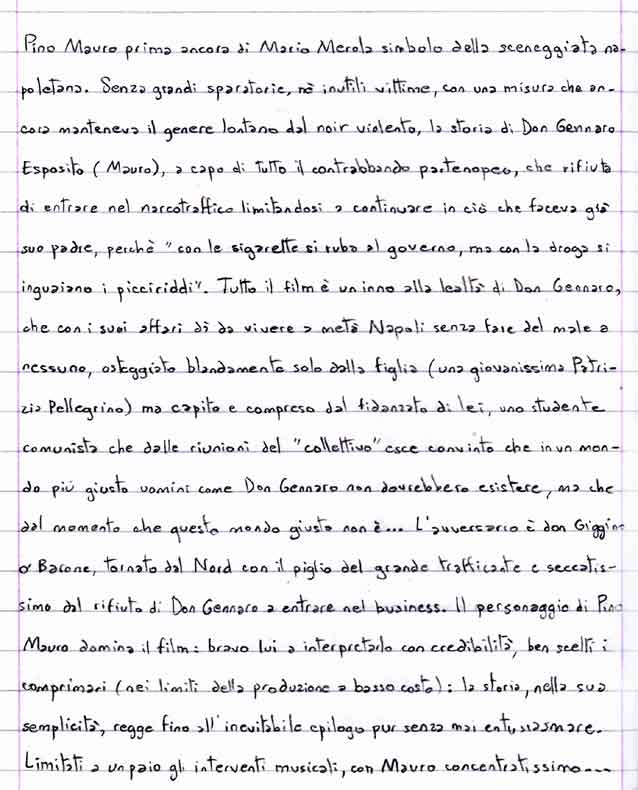 Pino Mauro prima ancora di Mario Merola simbolo della sceneggiata na-
poletana. Senza grandi sparatorie, nè inutili vittime, con una misura che an-
cora manteneva il genere lontano dal noir violento, la storia di Don Gennaro
Esposito (Mauro), a capo di tutto il contrabbando partenopeo, che rifiuta
di entrare nel narcotraffico limitandosi a continuare in ciò che faceva già
suo padre, perchè "con le sigarette si ruba al governo, ma con la droga si
inguaiano i picciriddi". Tutto il film è un inno alla lealtà di Don Gennaro,
che con i suoi affari dà da vivere a metà Napoli senza fare del male a
nessuno, osteggiato blandamente solo dalla figlia (una giovanissima Patri-
zia Pellegrino) ma capito e compreso dal fidanzato di lei, uno studente
comunista che dalle riunioni del "collettivo" esce convinto che in un mon-
do più giusto uomini come Don Gennaro non dovrebbero esistere, ma che
dal momento che questo mondo giusto non è... L'avversario è don Giggino
o' Barone, tornato dal Nord con il piglio del grande trafficante e seccatis-
simo dal rifiuto di Don Gennaro a entrare nel business. Il personaggio di Pino
Mauro domina il film: bravo lui a interpretarlo con credibilità, ben scelti i
comprimari (nei limiti della produzione a basso costo): la storia, nella sua
semplicità, regge fino all'inevitabile epilogo pur senza mai entusiasmare.
Limitati a un paio gli interventi musicali, con Mauro concentratissimo...